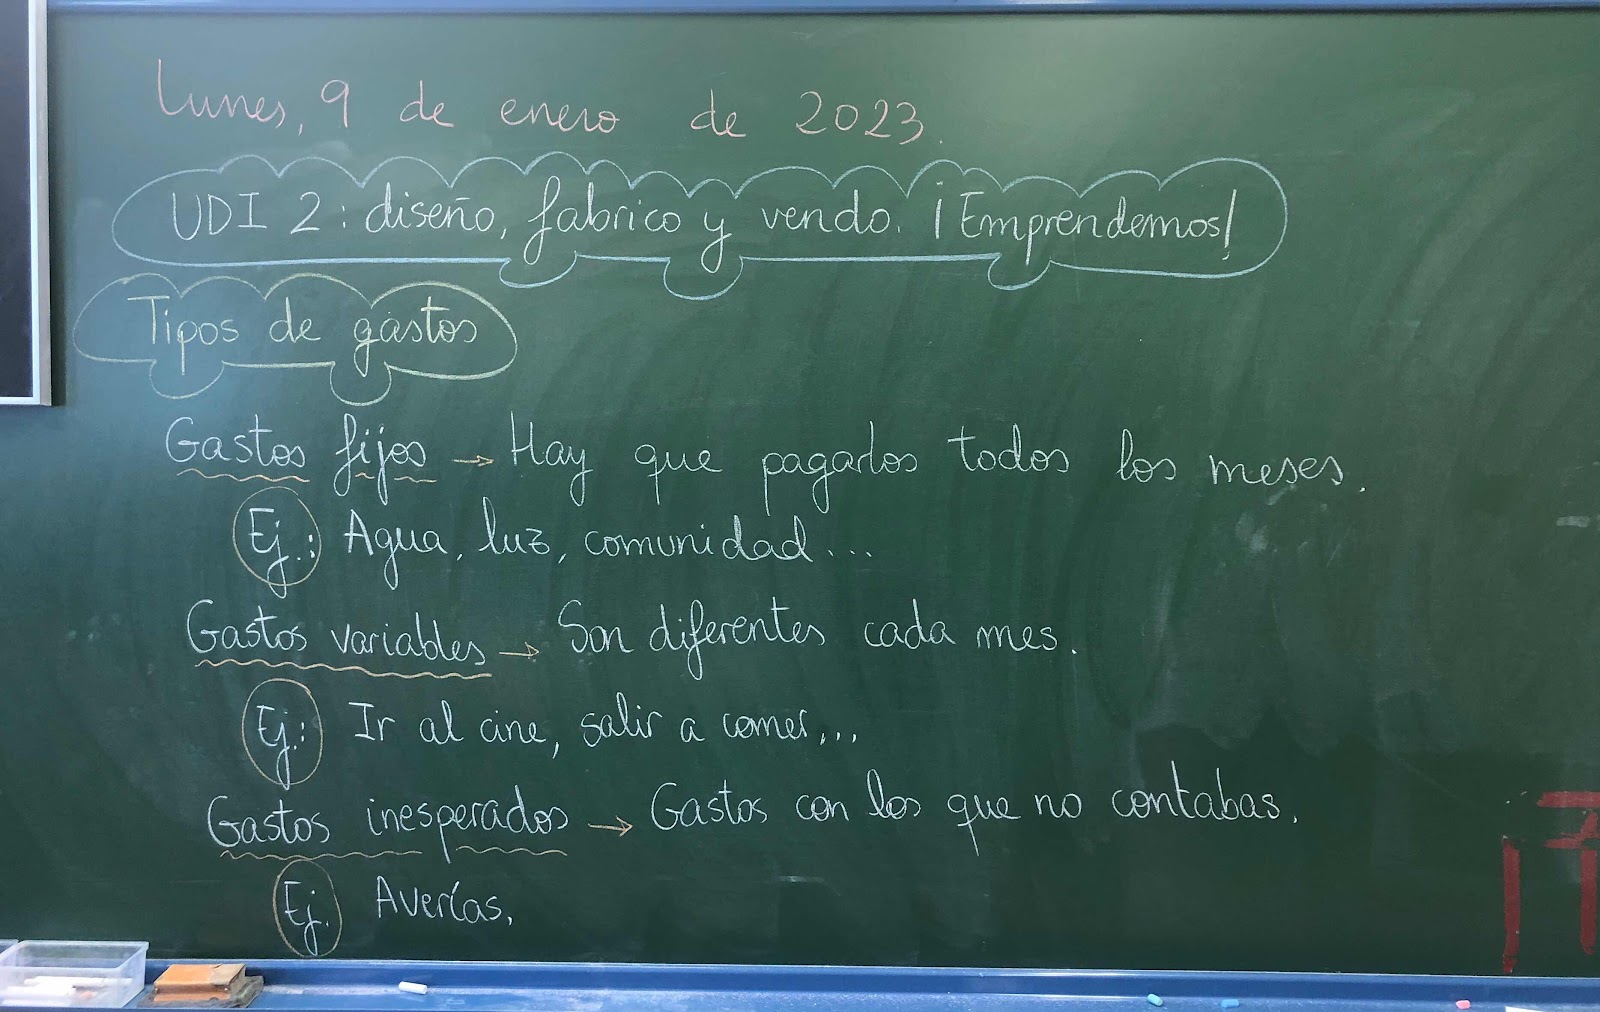 Lunes, 9 de enero de 2023.
UDI 2: diseño, fabrico y vendo. ¡Emprendemos!
Tipos de gastos
Gastos fijos → Hay que pagarlos todos los meses.
Ej.: Agua, luz, comunidad...
Gastos variables → Son diferentes cada mes.
Ej.: Ir al cine, salir a comer,...
Gastos inesperados → Gastos con los que no contabas.
Ej. Averías,